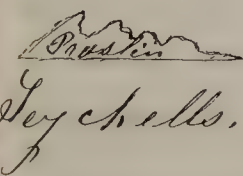 Praslin
Seychells.